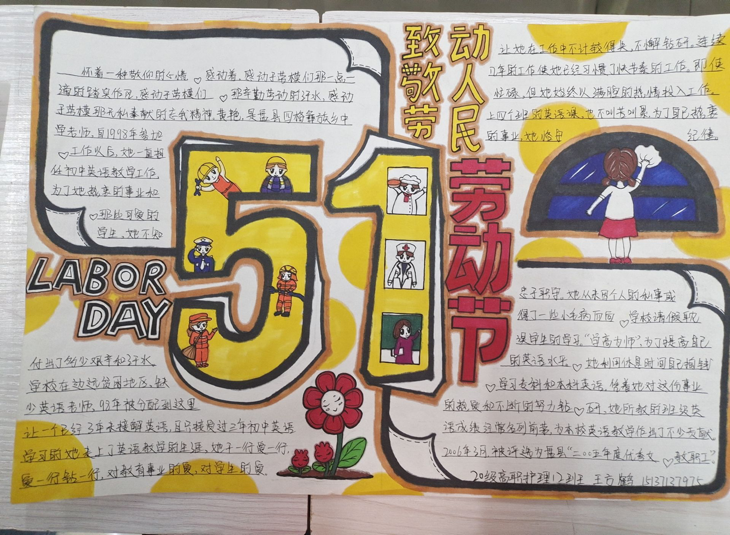 怀着一种敬仰的心情♡感动着,感动于劳模们那一点一
滴的踏实作风,感动于劳模们♡那辛勤劳动的汗水,感动
于劳模那无私奉献的
学老师,自1993年参加
♡工作以后,她一直担
任初中英语教学工作,
为了她热衷的事业和
♡那些可爱的
学生,她不知
LABOR
DAY
付出了多少艰辛和汗水。
学校在边远贫困地区,缺
少英语老师,93年被分配到这里
让一个已经3年未接触英语,且只接受过三年初中英语
学习的她走上了英语教学的生涯,她干一行爱一行,
爱一行钻一行,对教育事业的爱,对学生的爱
51
致敬劳
动人民
劳动节
让她在工作中不计较得失,不懈钻研,连续
几年的工作使她已经习惯了快节奏的工作,即使
她始终以满腔的热情投入工作。
上四个班的英语课,也不叫苦叫累,为了自己热衷
的事业,她
纪律,
忠于职守,她从未因个人的私事或
得了一些小毛病而向♡学校请假耽
误学生的学习,“学高为师”,为了提高自己
的英语水平♡她利用休息时间自己掏钱
♡学习专科和本科英语,凭着她对这份事业
的热爱和不断的努力钻♡研,她所教的班级英
语成绩年年名列前茅,为本校英语教学作出了不少贡献,
2006年3月被评选为
20级高职护理12班 王 15137137975